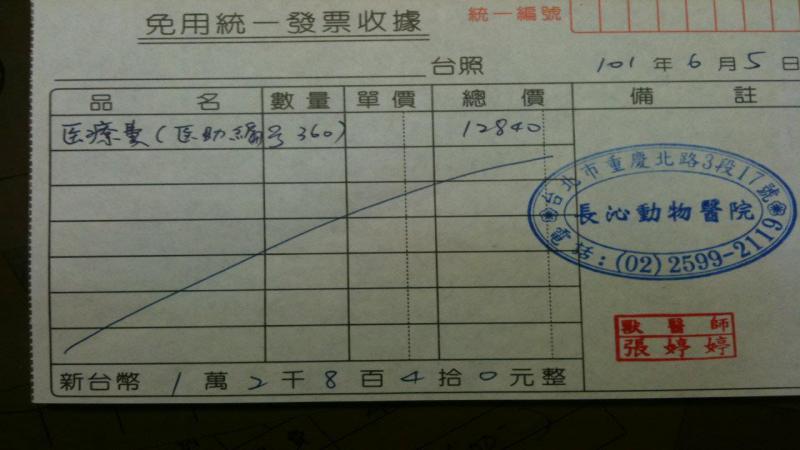 免用統一發票收據
統一編號
台照
101年6月5日
品名 數量 單價 總價 備註
医療費(医助編号360) 12840
台北市重慶北路3段17號
長沁動物醫院
電話:(02)2599-2119
獸醫師
張婷婷
新台幣1萬2千8百4拾0元整